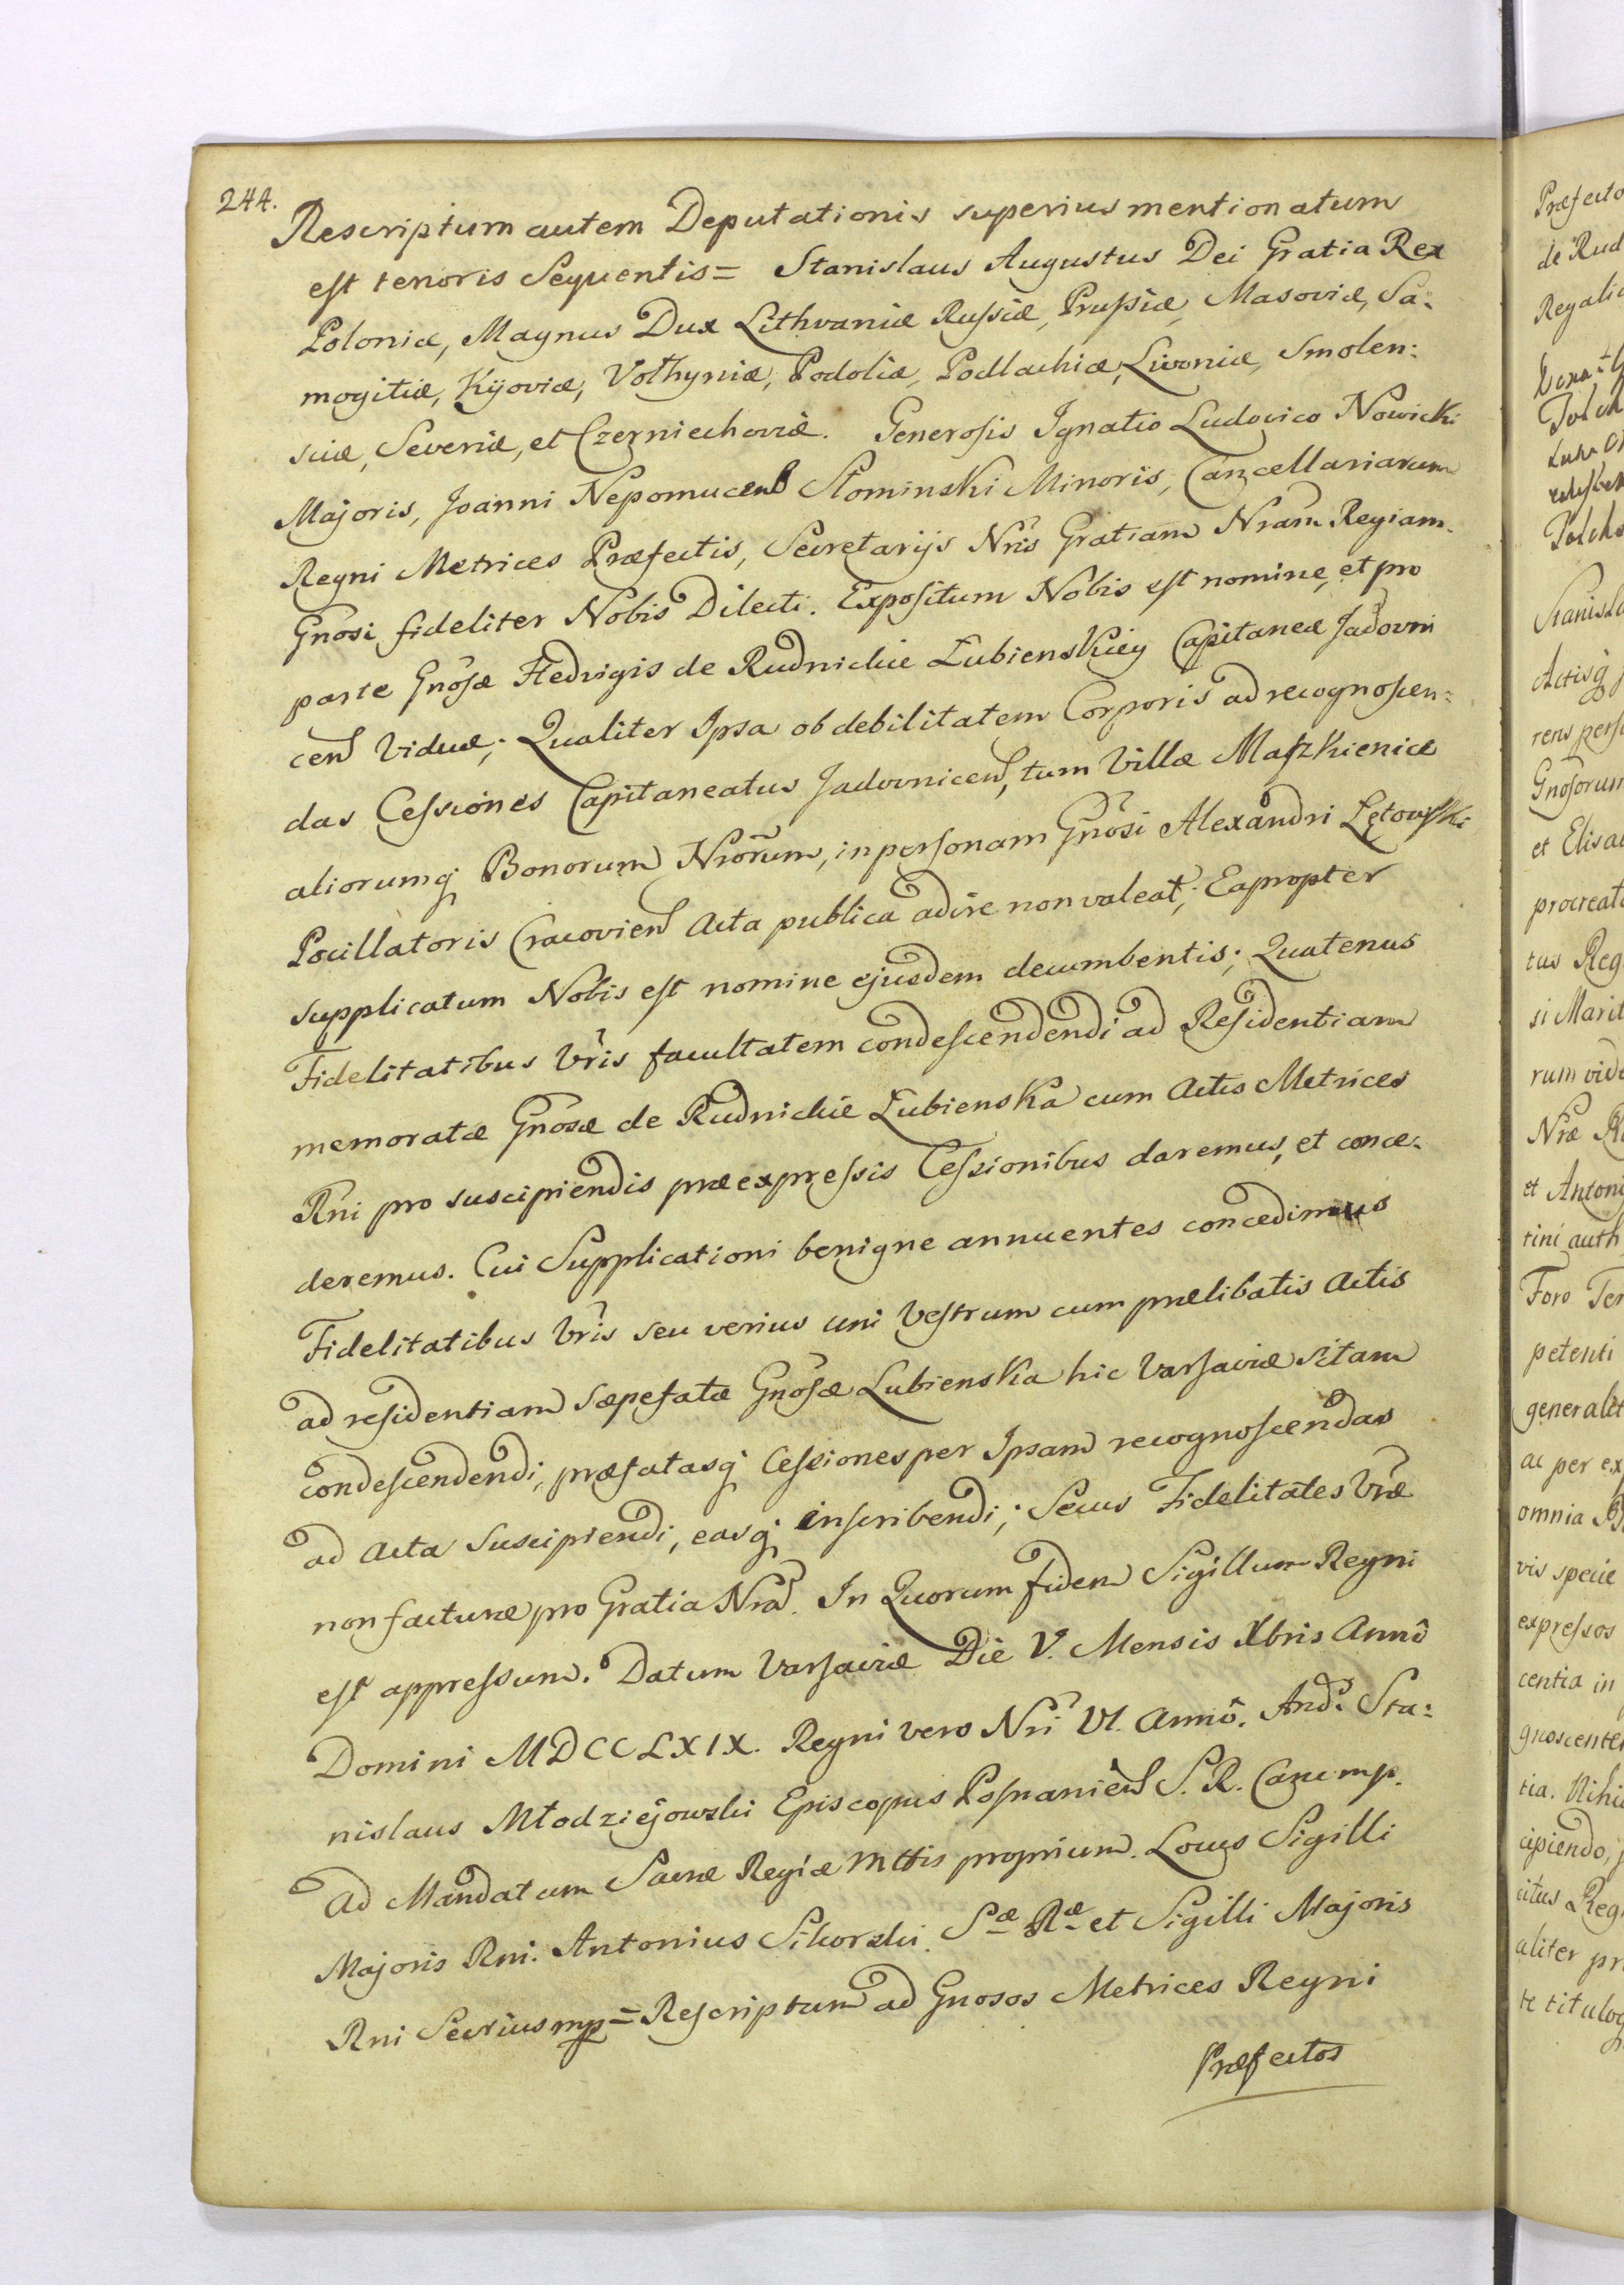 244.
Rescriptum autem Deputationis superius mentionatum
est tenoris Sequentis = Stanislaus Augustus Dei Gratia Rex
Poloniæ, Magnus Dux Lithvaniæ Rußiæ, Prußiæ, Masoviæ, Sa:
mogitiæ, Kijoviæ, Volhyniæ, Podoliæ, Podlachiæ, Livoniæ, Smolen:
sciæ, Severiæ, et Czerniechoviæ. Generosis Ignatio Ludovico Nowicki
Majoris, Joanni Nepomuceno Słominski Minoris, Cancellariarum
Regni Metrices Præfectis, Secretarijs Nris Gratiam Nram Regiam.
Gnosi fideliter Nobis Dilecti. Expositum Nobis est nomine, et pro
parte Gnosæ Hedvigis de Rudnickie Łubienskiey Capitaneæ Jadovni
cens Viduæ; Qualiter Ipsa ob debilitatem Corporis ad recognoscen:
das Cessiones Capitaneatus Jadovnicens, tum Villæ Maszkienice
aliorumq Bonorum Nrorum, in personam Gnosi Alexandri Łętowski
Pocillatoris Cracoviens Acta publica adire non valeat; Eapropter
supplicatum Nobis est nomine ejusdem decumbentis; Quatenus
Fidelitatibus Vris facultatem condescendendi ad Residentiam
memoratæ Gnosæ de Rudnickie Łubienska cum Actis Metrices
Rni pro suscipiendis præexpressis Cessionibus daremus, et conce:
deremus. Cui Supplicationi benigne annuentes concedimus
Fidelitatibus Vris seu verius uni Vestrum cum prælibatis Actis
ad residentiam sæpefatæ Gnosæ Łubienska hic Varsaviæ sitam
condescendendi, præfatasq Cessiones per Ipsam recognoscendas
ad Acta Suscipiendi, easq inscribendi; Secus Fidelitates Vræ
non facturæ pro Gratia Nra. In Quorum fidem Sigillum Regni
est appressum. Datum Varsaviæ Die V. Mensis Xbris Anno
Domini MDCCLXIX. Regni vero Nri VI. Anno. And. Sta:
nislaus Młodziejowski Episcopus Posnaniens S. R. Canc mp.
Ad Mandatum Sacræ Regiæ Mttis proprium. Locus Sigilli
Majoris Rni. Antonius Sikorski. Sæ Ræ et Sigilli Majoris
Rni Secrius mp = Rescriptum ad Gnosos Metrices Regni
Præfectos
Præfecto
de Rud
Regali
Stanisla
Actisq
rens pers
Gnosorum
et Elisa
procreat
tus Reg
si Marit
rum vid
Nræ R
et Anton
tini auth
Foro Ter
petenti
generalit
ac per ex
omnia
vis specie
expressos
centia in
gnoscente
tia. Nihi
cipiendo,
citus Reg
aliter pr
te titulo